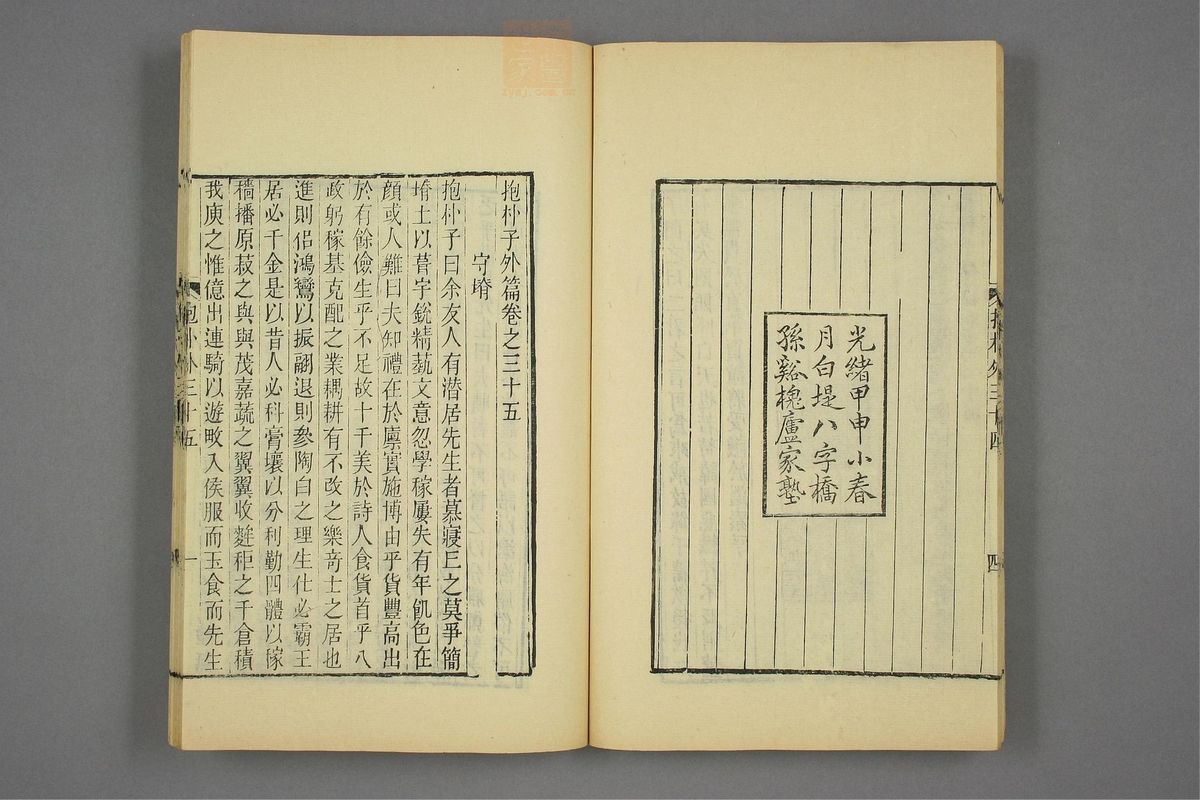 光緒甲申小春
月白堤八字橋
孫谿槐廬家塾
四
抱朴子外篇卷之三十五
守塉
抱朴子曰余友人有潛居先生者慕寢丘之莫爭簡
塉土以葺宇銳精藝文意忽學稼屢失有年飢色在
顏或人難曰夫知禮在於廩實施博由乎貨豐高出
於有餘儉生乎不足故十千美於詩人食貨首乎八
政躬稼基克配之業耦耕有不改之樂奇士之居也
進則侶鴻鸞以振翮退則參陶白之理生仕必霸王
居必千金是以昔人必科膏壤以分利勤四體以稼
穡播原菽之與與茂嘉蔬之翼翼收麰秬之千倉積
我庾之惟億出連騎以遊畋入侯服而玉食而先生
抱朴外三十五
一